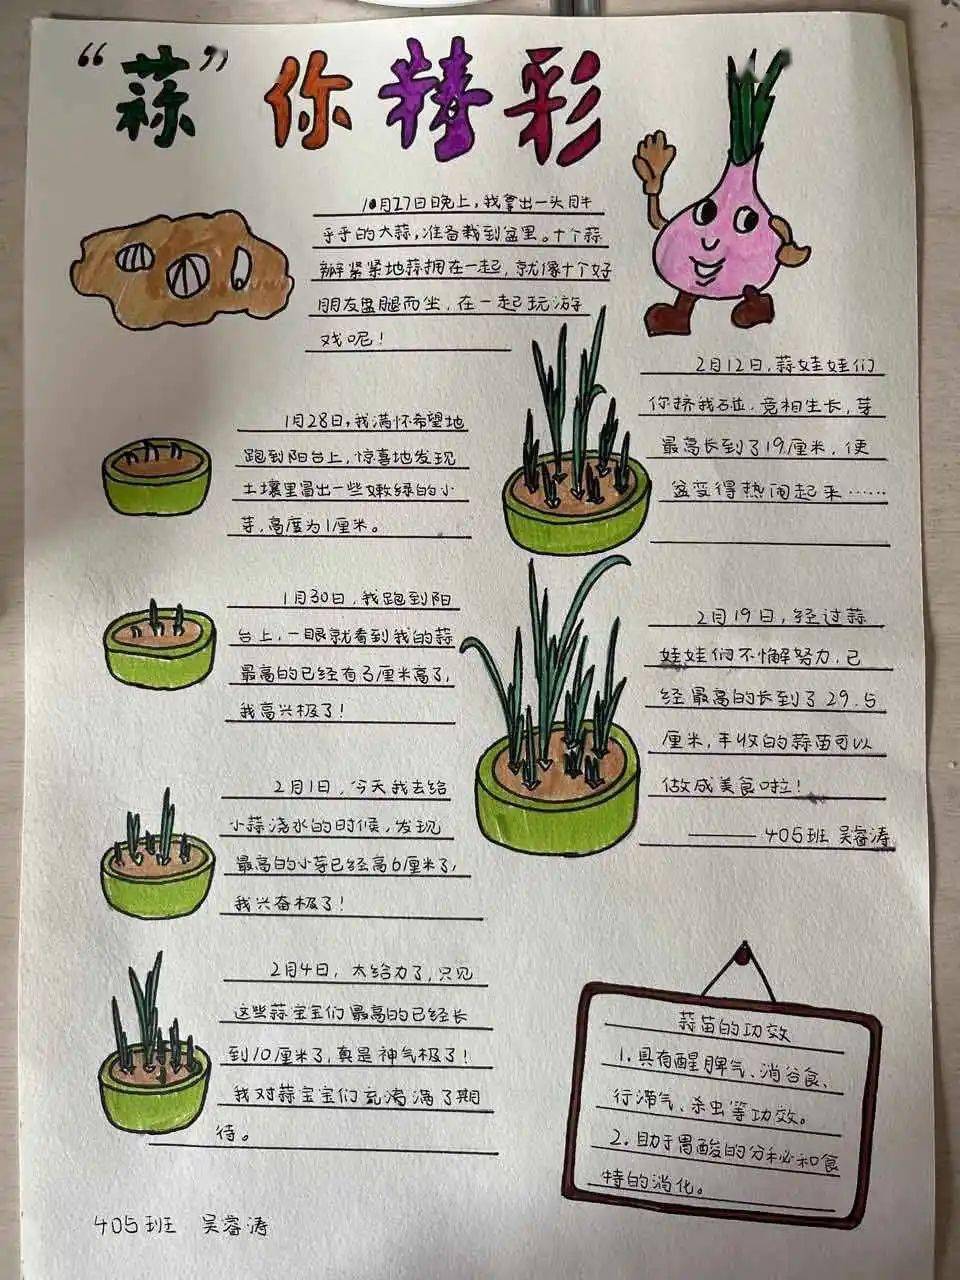 “蒜”你精彩
10月27日晚上，我拿出一头胖
乎乎的大蒜，准备栽到盆里。十个蒜
瓣紧紧地蒜拥在一起，就像十个好
朋友盘腿而坐，在一起玩游
戏呢！
1月28日，我满怀希望地
跑到阳台上，惊喜地发现
土壤里冒出一些嫩绿的小
芽，高度为1厘米。
1月30日，我跑到阳
台上，一眼就看到我的蒜
最高的已经有3厘米高了，
我高兴极了！
2月1日，今天我去给
小蒜浇水的时候，发现
最高的小芽已经高6厘米了，
我兴奋极了！
2月4日，太给力了，只见
这些蒜宝宝们最高的已经长
到10厘米了，真是神气极了！
我对蒜宝宝们充满满了期
待。
2月12日，蒜娃娃们
你挤我碰，竞相生长，芽
最高长到了19厘米，使
盆变得热闹起来……
2月19日，经过蒜
娃娃们不懈努力，已
经最高的长到了29.5
厘米，丰收的蒜苗可以
做成美食啦！
——405班 吴睿涛
蒜苗的功效
1.具有醒脾气、消谷食、
行滞气、杀虫等功效。
2.助于胃酸的分泌和食
特的消化。
405班 吴睿涛